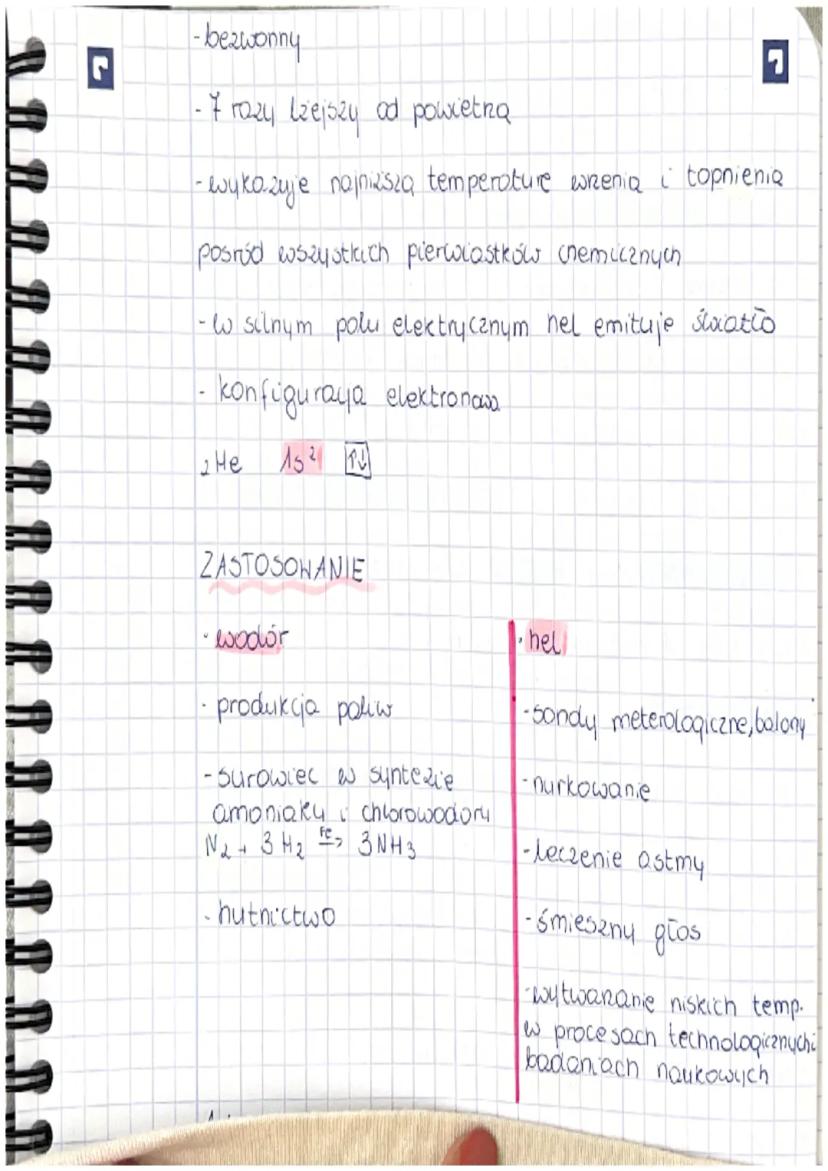 - bezwonny
- 7 razy lżejszy od powietrza
- wykazuje najniższą temperature wrzenia i topnienia
pośród wszystkich pierwiastków chemicznych
- w silnym polu elektrycznym hel emituje światło
- konfiguracja elektronowa
₂He 1s² ↑↓
ZASTOSOWANIE
· wodór
· produkcja paliw
- surowiec w syntezie
amoniaku i chlorowodoru
N₂ + 3H₂ Fe→ 3NH₃
- hutnictwo
· hel
- sondy meterologiczne, balony
- nurkowanie
- leczenie astmy
- śmieszny głos
- wytwarzanie niskich temp.
w procesach technologicznych i
badaniach naukowych